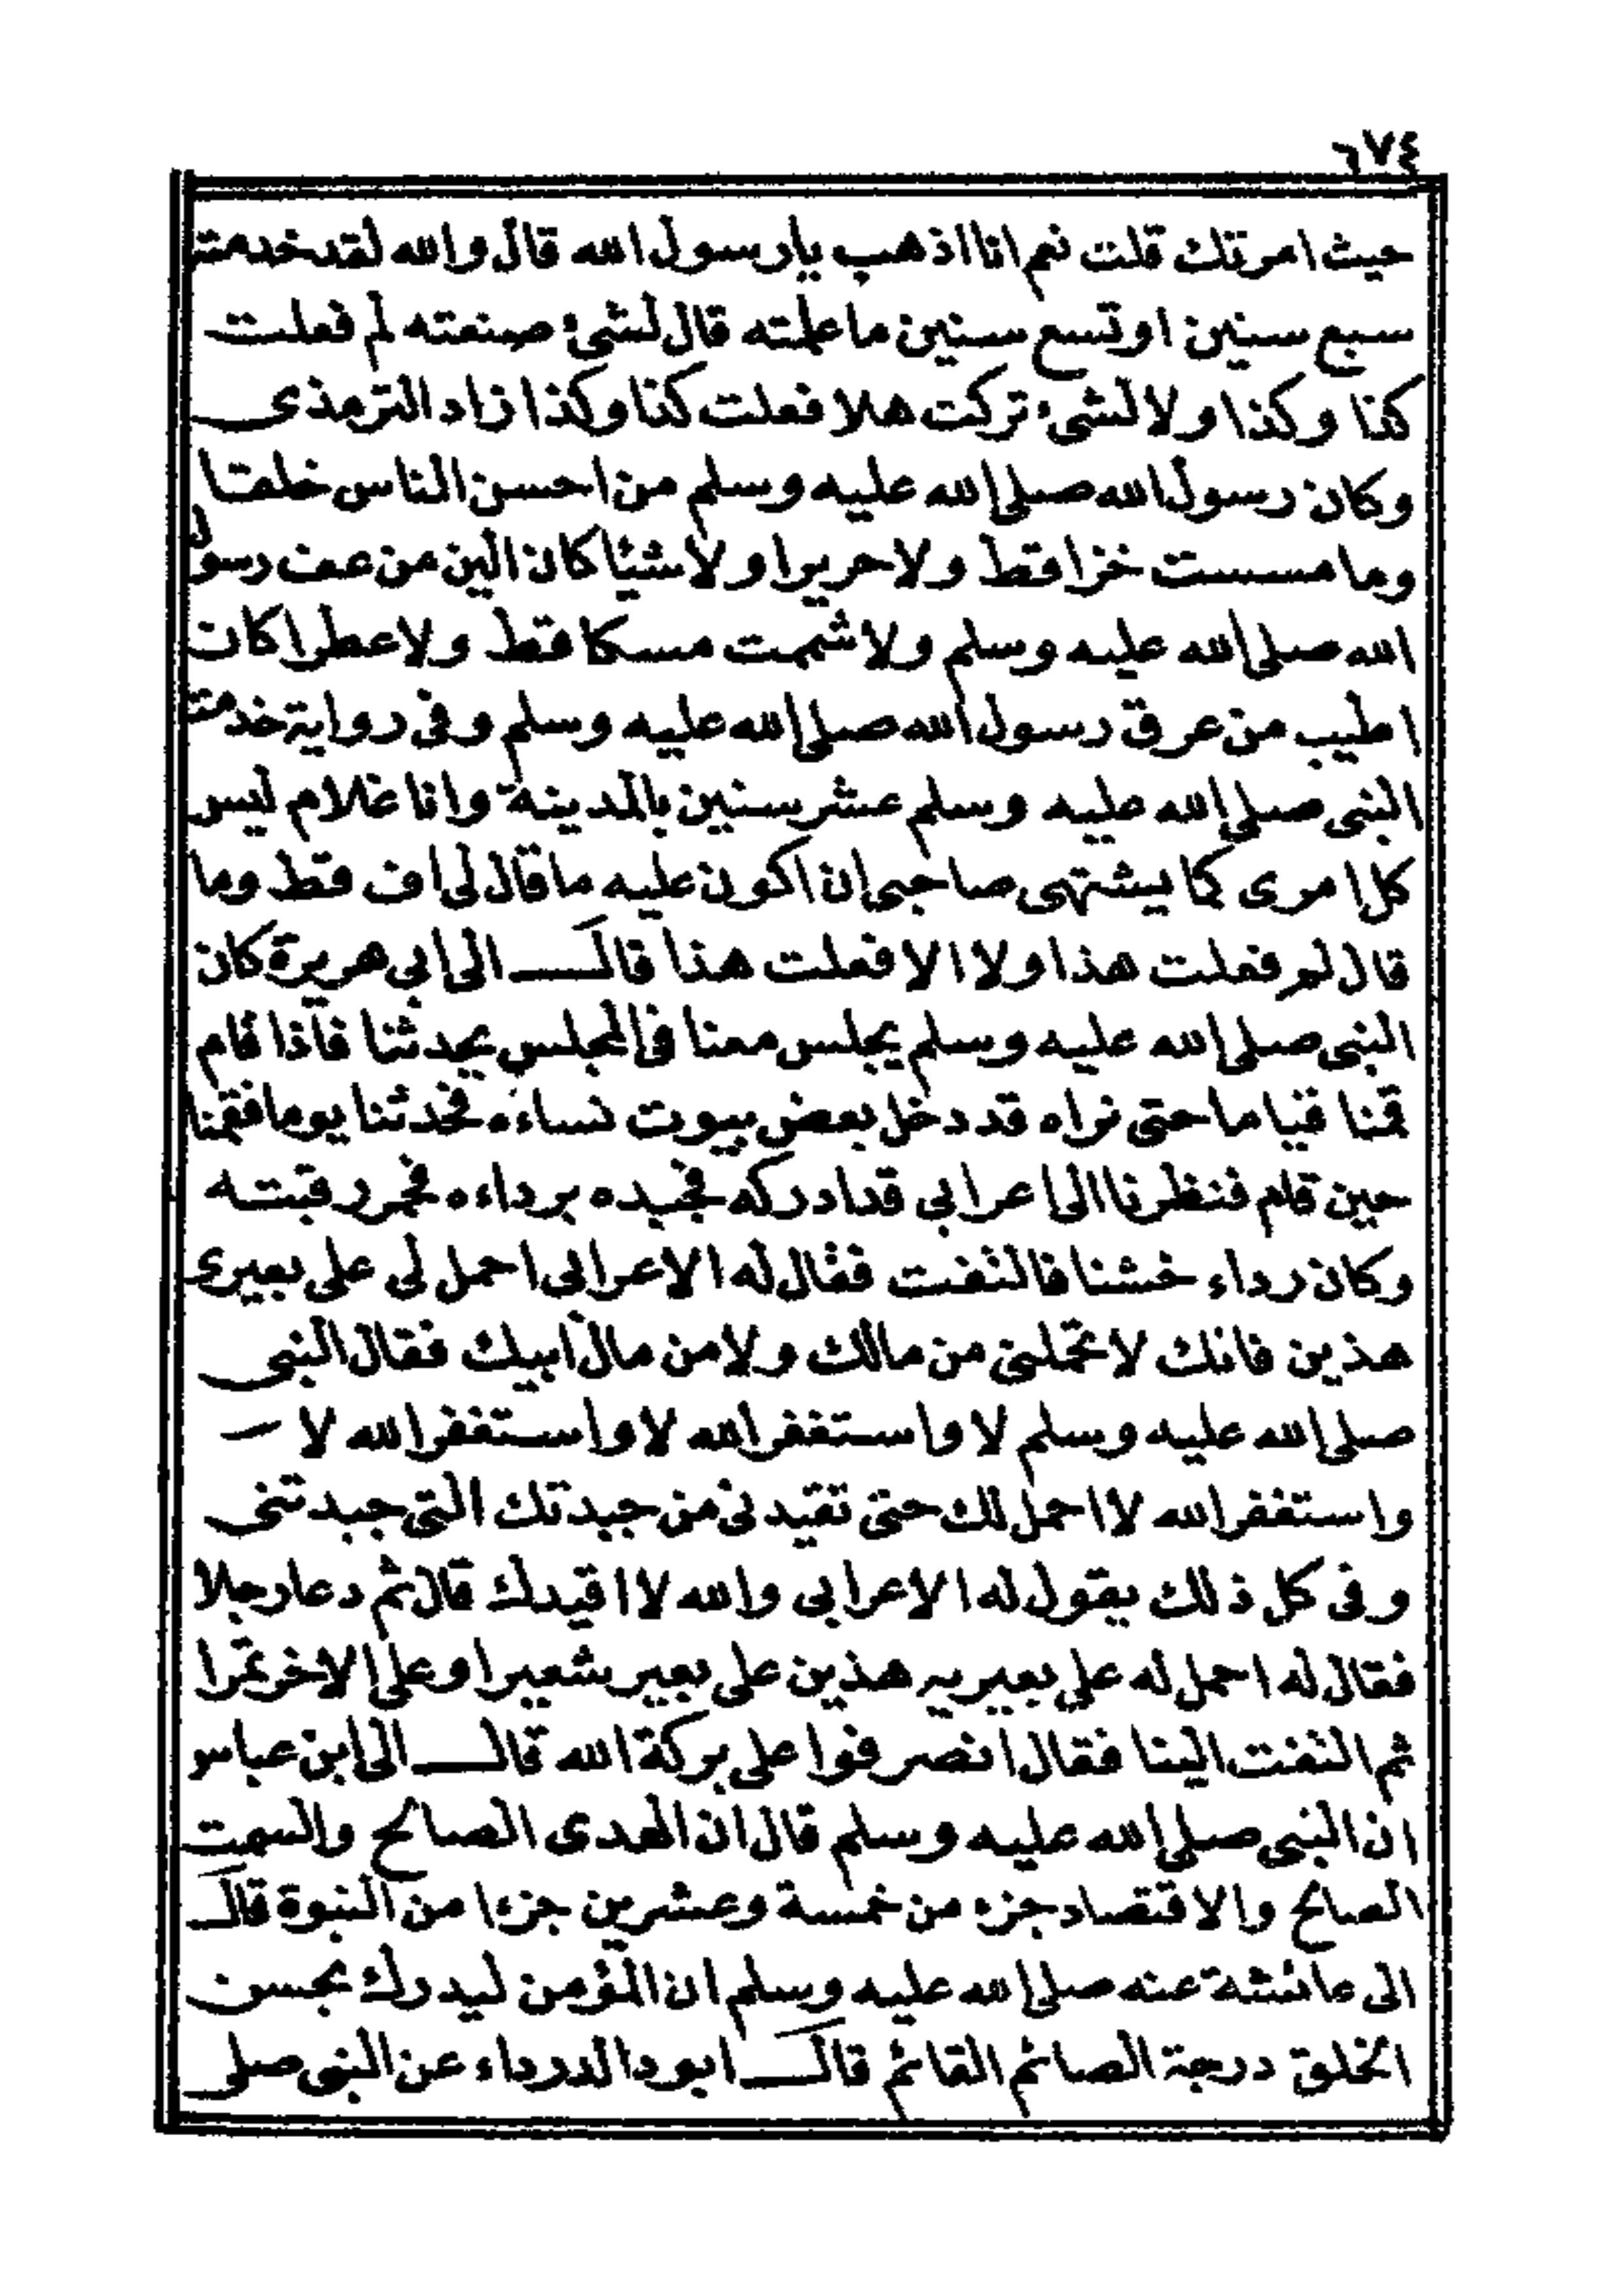 ٦٧٤
حيث امرتك قلت نعم انا اذهب يا رسول الله قال والله لقد خدمته
سبع سنين او تسع سنين ما علمته قال لشئ صنعته لم فعلت
كذا وكذا ولا لشئ تركت هلا فعلت كذا وكذا زاد الترمذى
وكان رسول الله صلى الله عليه وسلم من احسن الناس خلقا
وما مسست خزا قط ولا حريرا ولا شيئا كان الين من كف رسول
الله صلى الله عليه وسلم ولا شممت مسكا قط ولا عطرا كان
اطيب من عرق رسول الله صلى الله عليه وسلم وفى رواية خدمت
النبى صلى الله عليه وسلم عشر سنين بالمدينة وانا غلام ليس
كل امرى كما يشتهى صاحبى ان اكون عليه ما قال لى اف قط وما
قال لم فعلت هذا ولا الا فعلت هذا قال الى ابى هريرة كان
النبى صلى الله عليه وسلم يجلس معنا فى المجلس يحدثنا فاذا قام
قمنا قياما حتى نراه قد دخل بعض بيوت نساءه فحدثنا يوما فقمنا
حين قام فنظرنا الى اعرابى قد ادركه فجبده برداءه فحمر رقبته
وكان رداء خشنا فالتفت فقال له الاعرابى احمل لى على بعيرى
هذين فانك لا تحملنى من مالك ولا من مال ابيك فقال النبى
صلى الله عليه وسلم لا واستغفر الله لا واستغفر الله لا
واستغفر الله لا احمل لك حتى تقيدنى من جبدتك التى جبدتنى
وفى كل ذلك يقول له الاعرابى والله لا اقيدك قال ثم دعا رجلا
فقال له احمل له على بعيريه هذين على بعير شعيرا وعلى الاخر تمرا
ثم التفت الينا فقال انصرفوا على بركة الله قال الى ابن عباس
ان النبى صلى الله عليه وسلم قال ان الهدى الصالح والسمت
الصالح والاقتصاد جزء من خمسة وعشرين جزءا من النبوة قال
الى عائشة عنه صلى الله عليه وسلم ان المؤمن ليدرك بحسن
الخلق درجة الصائم القائم قال ابو دا الدرداء عن النبى صلى